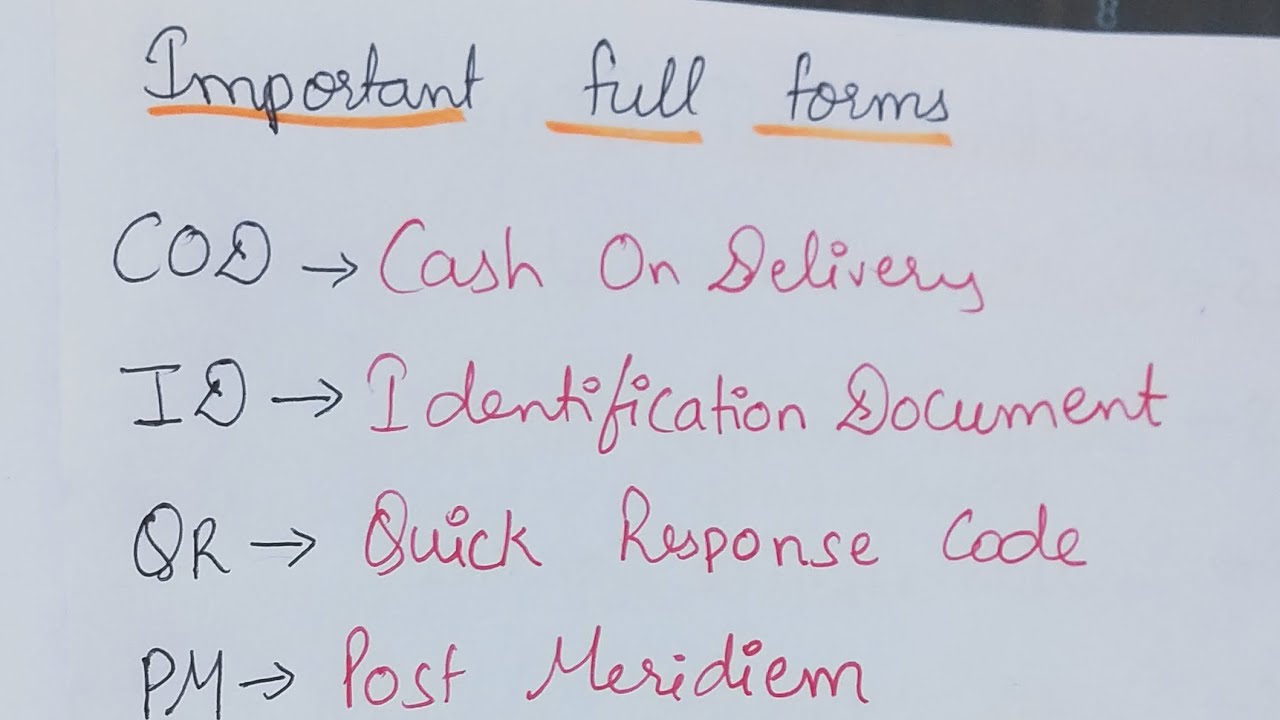 Important full forms
COD → Cash On Delivery
ID → Identification Document
QR → Quick Response Code
PM → Post Meridiem